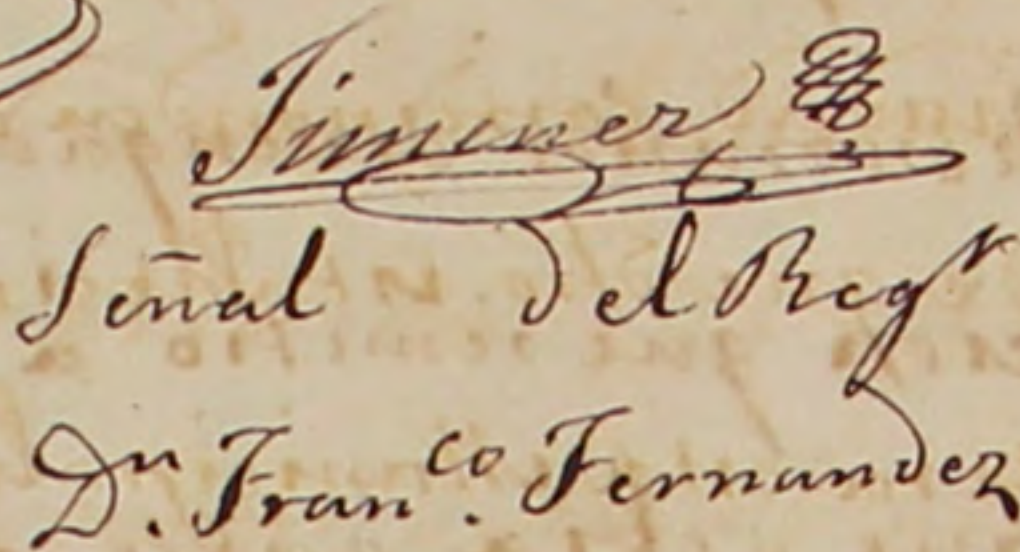 Jimenez
Señal del Regr
Dn. Franco. Fernandez